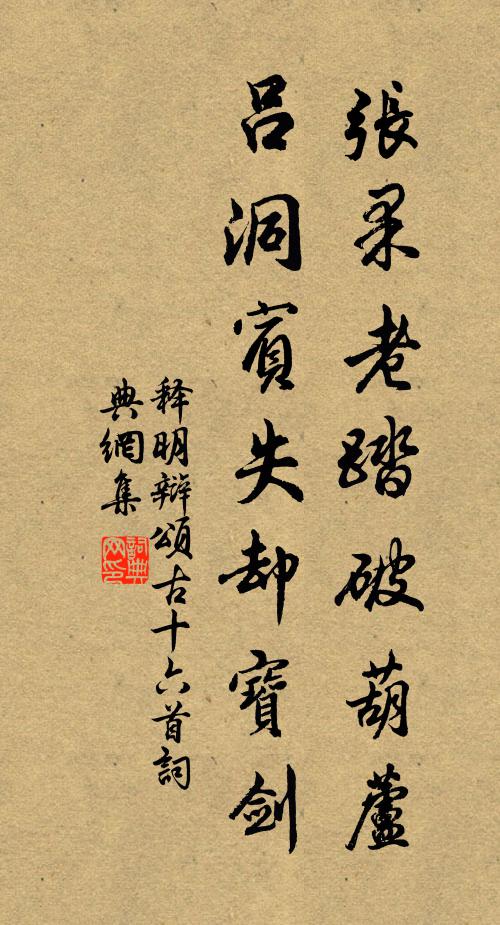 張果老踏破葫蘆
呂洞賓失却寶劍
释明辩頌古十六首詞
典網集
詞典網印